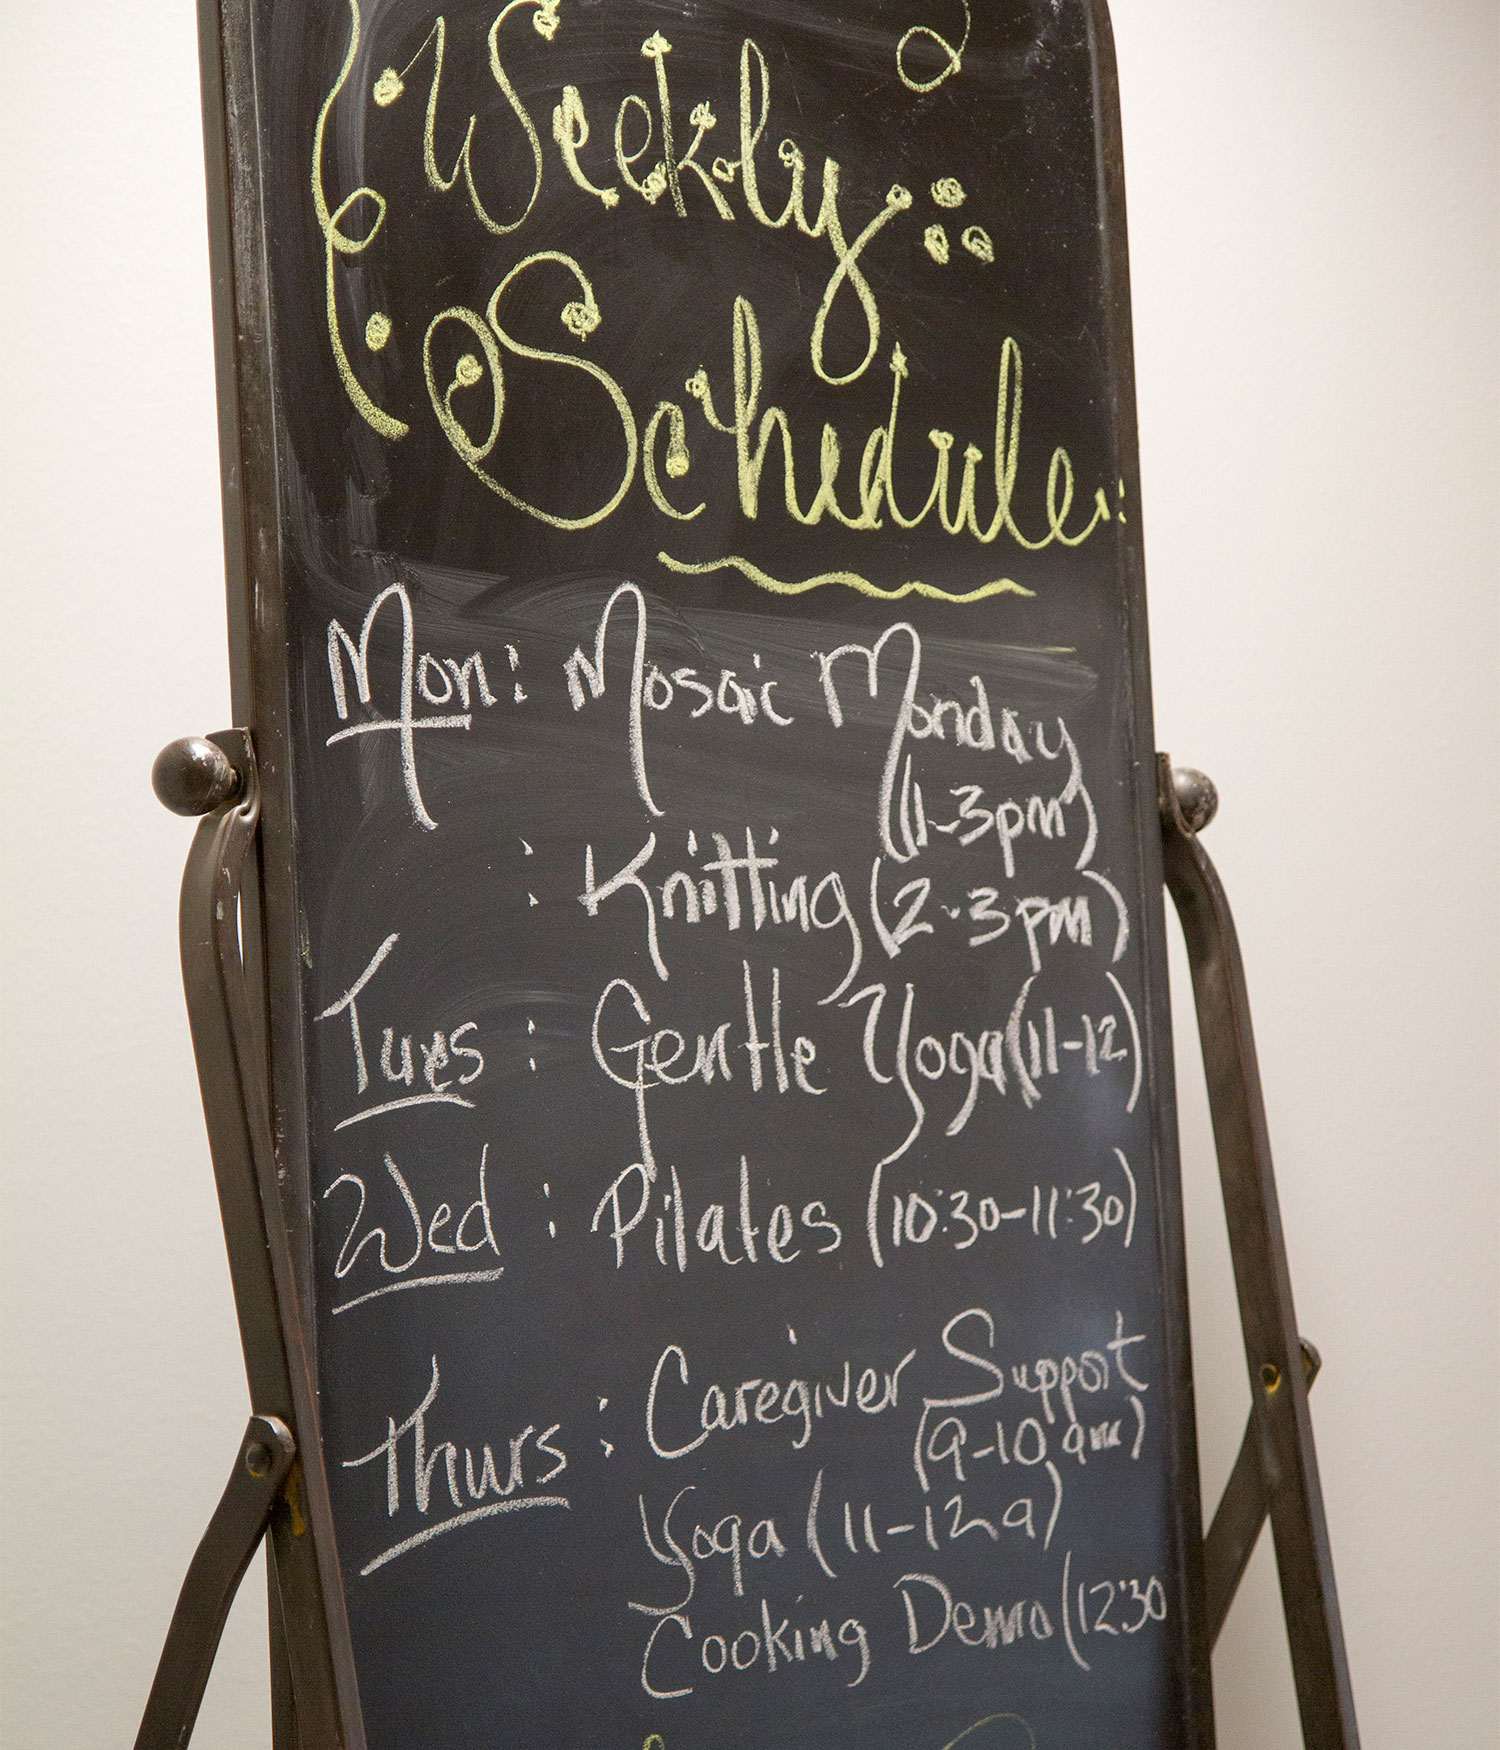 Weekly
Schedule:
Mon: Mosaic Monday
(1-3pm)
: Knitting (2-3pm)
Tues: Gentle Yoga (11-12)
Wed: Pilates (10:30-11:30)
Thurs: Caregiver Support
(9-10am)
Yoga (11-12a)
Cooking Demo (12:30